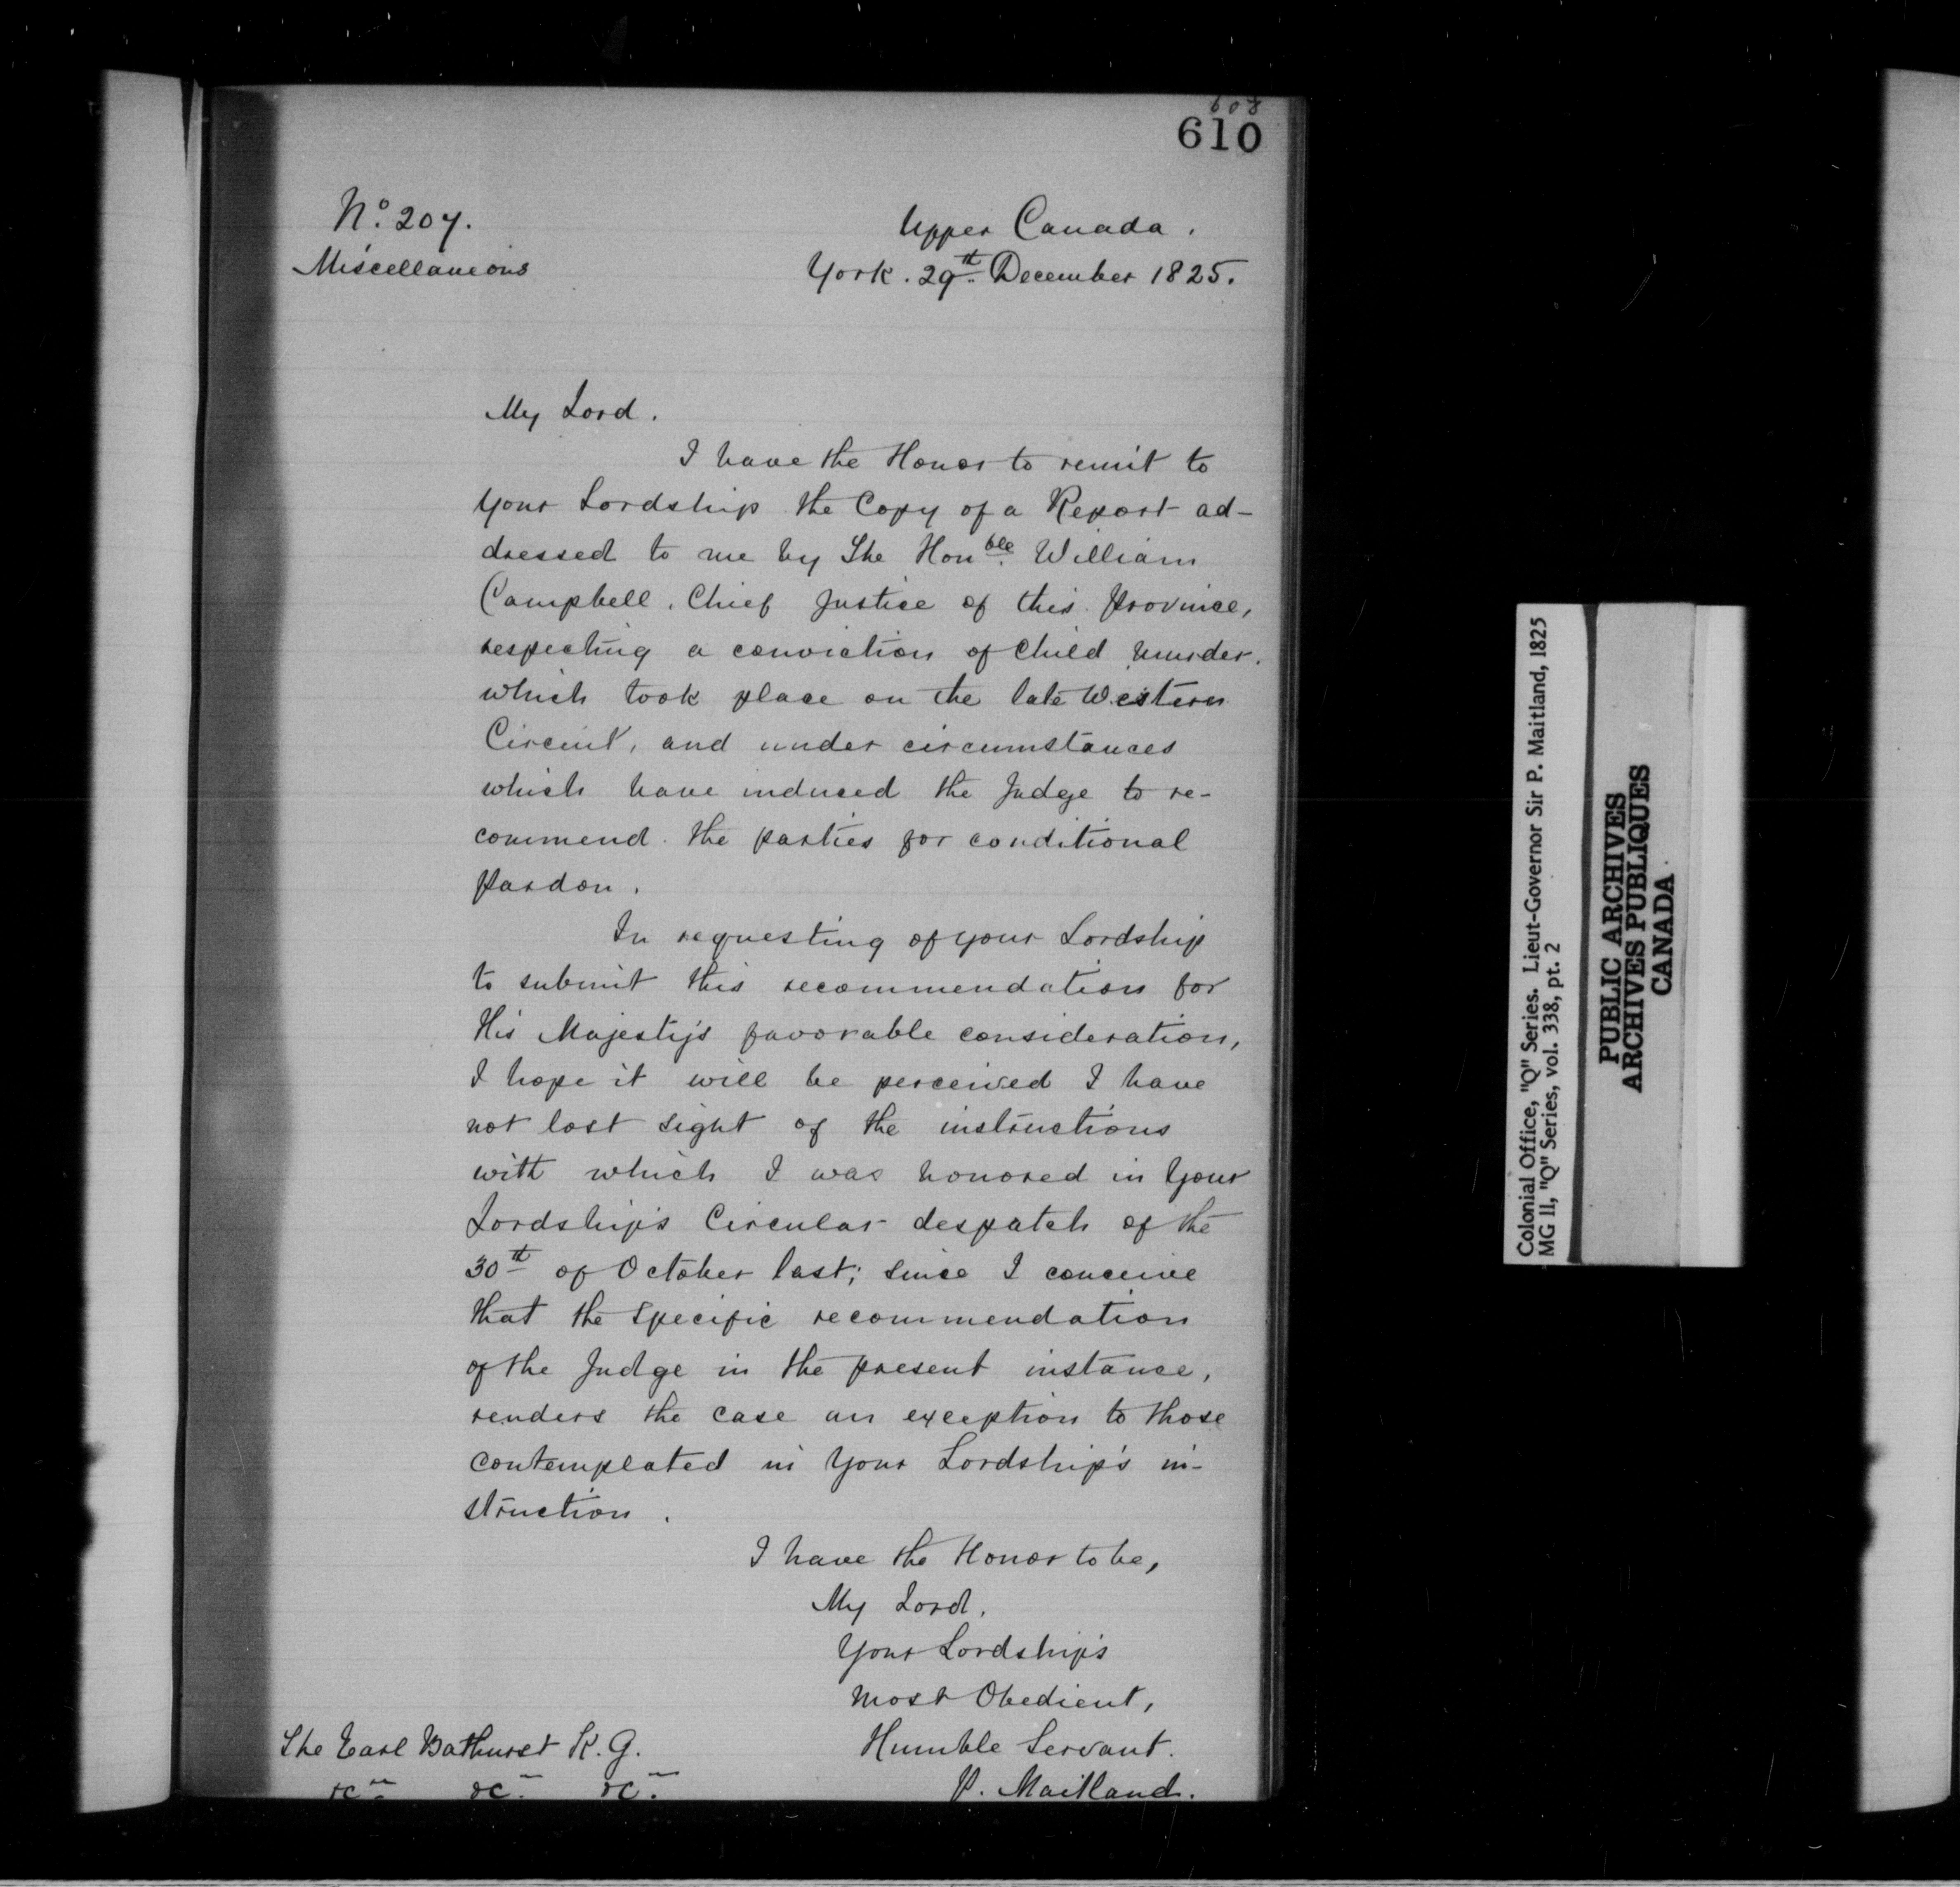 608
610
No. 207.
Miscellaneous
Upper Canada.
York. 29th December 1825.
My Lord.
I have the Honor to remit to
your Lordship the Copy of a Report ad-
dressed to me by The Honble. William
Campbell, Chief Justice of this province,
respecting a conviction of Child Murder.
which took place on the late Western
Circuit, and under circumstances
which have induced the Judge to re-
commend the parties for conditional
pardon.
In requesting of your Lordship
to submit this recommendation for
His Majesty's favorable consideration,
I hope it will be perceived I have
not lost sight of the instructions
with which I was honored in Your
Lordship's Circular despatch of the
30th of October last; since I conceive
that the specific recommendation
of the Judge in the present instance,
renders the case an exception to those
contemplated in Your Lordship's in-
struction.
I have the Honor to be,
My Lord.
Your Lordship's
Most Obedient,
Humble Servant.
P. Maitland.
The Earl Bathurst K.G.
&c. &c. &c.
Colonial Office, "Q" Series. Lieut-Governor Sir P. Maitland, 1825
MG 11, "Q" Series, vol. 338, pt. 2
PUBLIC ARCHIVES
ARCHIVES PUBLIQUES
CANADA